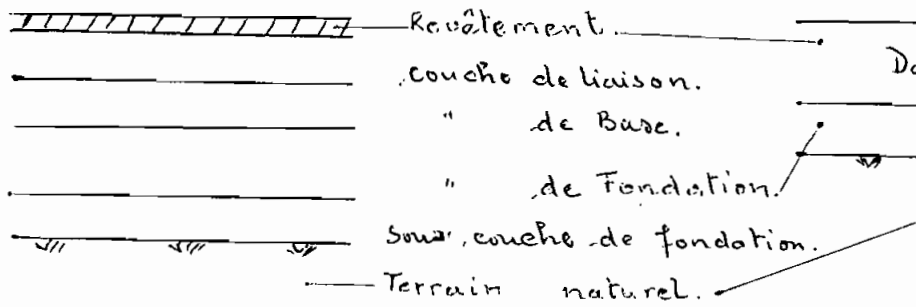 Revêtement.
couche de liaison.
" de Base.
" de Fondation.
sous couche de fondation.
Terrain naturel.